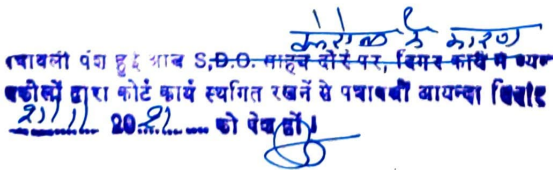 के कारण
पत्रावली पेश हुई आज S.D.O. साहब दौरे पर, दिगर कार्य में व्यस्त
वकीलों द्वारा कोर्ट कार्य स्थगित रखनें से पत्रावली आयन्दा
20 21 को पेश हों।